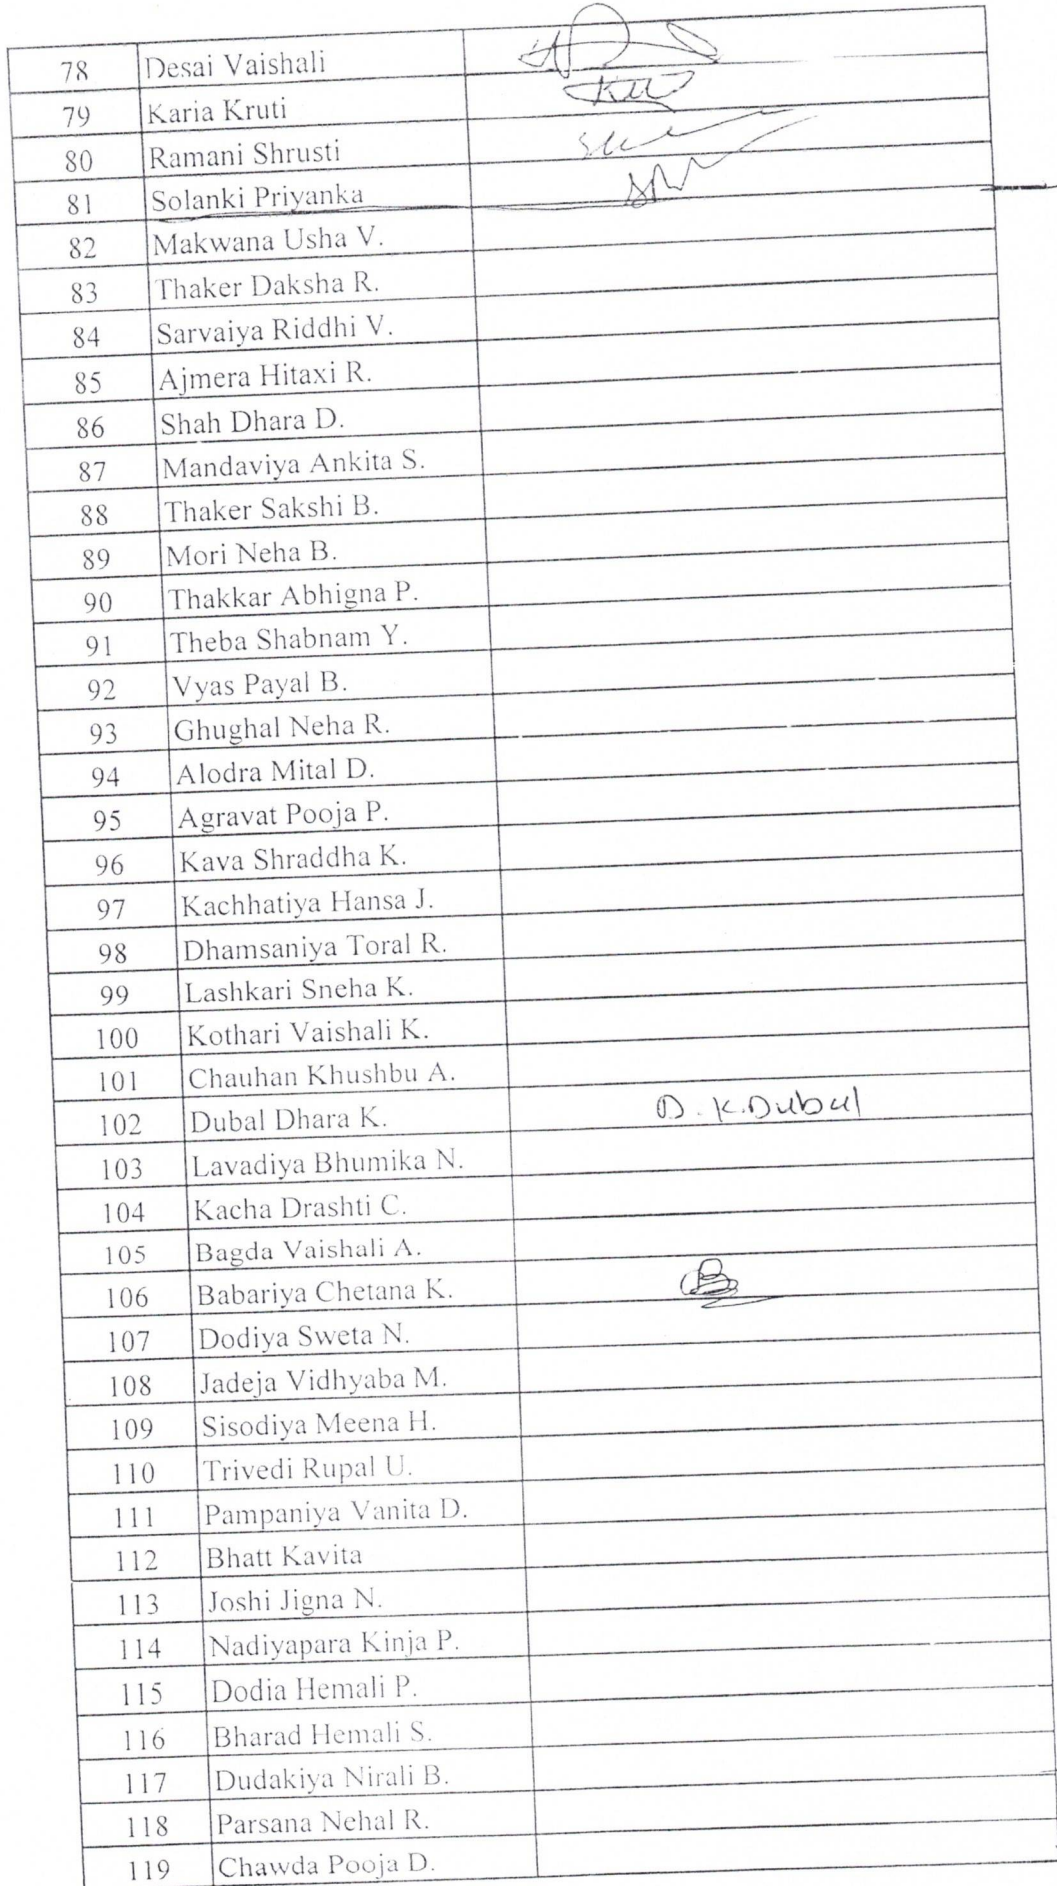 78 Desai Vaishali
79 Karia Kruti
80 Ramani Shrusti
81 Solanki Priyanka
82 Makwana Usha V.
83 Thaker Daksha R.
84 Sarvaiya Riddhi V.
85 Ajmera Hitaxi R.
86 Shah Dhara D.
87 Mandaviya Ankita S.
88 Thaker Sakshi B.
89 Mori Neha B.
90 Thakkar Abhigna P.
91 Theba Shabnam Y.
92 Vyas Payal B.
93 Ghughal Neha R.
94 Alodra Mital D.
95 Agravat Pooja P.
96 Kava Shraddha K.
97 Kachhatiya Hansa J.
98 Dhamsaniya Toral R.
99 Lashkari Sneha K.
100 Kothari Vaishali K.
101 Chauhan Khushbu A.
102 Dubal Dhara K. D. K. Dubal
103 Lavadiya Bhumika N.
104 Kacha Drashti C.
105 Bagda Vaishali A.
106 Babariya Chetana K.
107 Dodiya Sweta N.
108 Jadeja Vidhyaba M.
109 Sisodiya Meena H.
110 Trivedi Rupal U.
111 Pampaniya Vanita D.
112 Bhatt Kavita
113 Joshi Jigna N.
114 Nadiyapara Kinja P.
115 Dodia Hemali P.
116 Bharad Hemali S.
117 Dudakiya Nirali B.
118 Parsana Nehal R.
119 Chawda Pooja D.